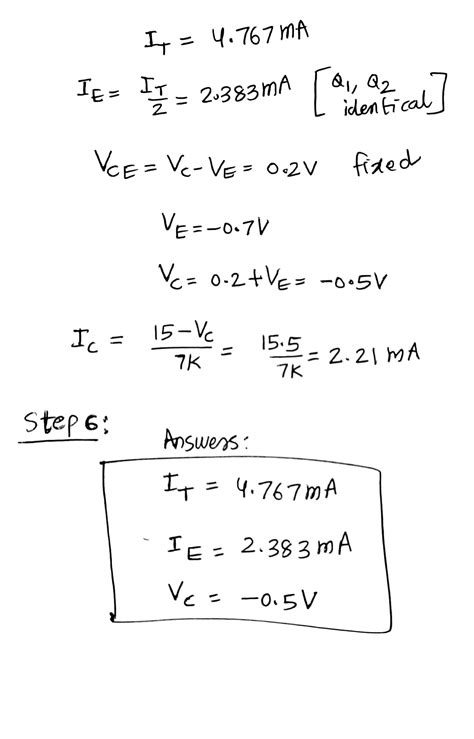 I_T = 4.767mA
I_E = I_T/2 = 2.383mA [Q1, Q2 identical]
V_CE = V_C - V_E = 0.2V fixed
V_E = -0.7V
V_C = 0.2 + V_E = -0.5V
I_C = 15-V_C/7K = 15.5/7K = 2.21 mA
Step 6:
Answers:
I_T = 4.767mA
I_E = 2.383mA
V_C = -0.5V